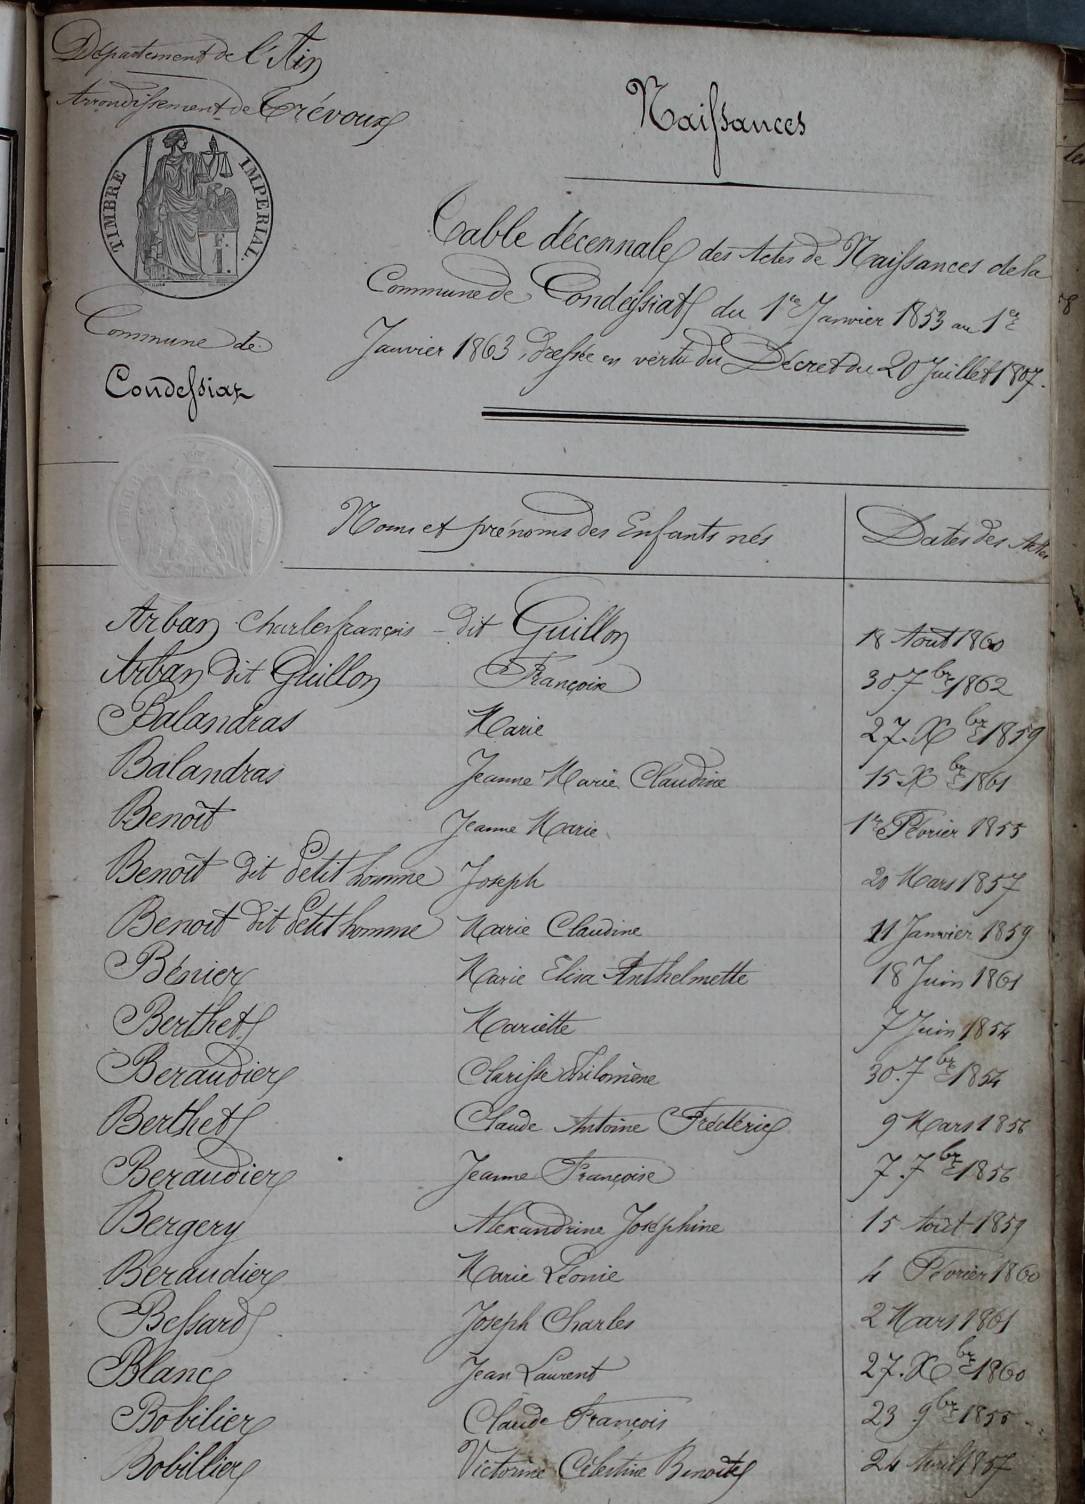 Département de l'Ain
Arrondissement de Trévoux
TIMBRE IMPERIAL
Commune de
Condessiat
Naissances
Table décennale des Actes de Naissances de la
Commune de Condeissiat du 1er Janvier 1853 au 1er
Janvier 1863, dressée en vertu du Décret du 20 Juillet 1807.
Noms et prénoms des Enfants nés Dates des Actes
Arban Charles françois - dit Guillon 18 Aout 1860
Arban dit Guillon Françoise 30. 7bre 1862
Balandras Marie 27. Xbre 1859
Balandras Jeanne Marie Claudine 15 Xbre 1861
Benoît Jeanne Marie 1er Février 1855
Benoît dit Petit homme Joseph 20 Mars 1857
Benoit dit Petit homme Marie Claudine 11 Janvier 1859
Bénier Marie Elisa Anthelmette 18 Juin 1861
Berthet Mariette 7 Juin 1854
Beraudier Clarisse Philomène 30. 7bre 1854
Berthet Claude Antoine Fréderic 9 Mars 1856
Beraudier Jeanne Françoise 7. 7bre 1856
Bergery Alexandrine Joséphine 15 Août 1859
Beraudier Marie Léonie 4 Février 1860
Bessard Joseph Charles 2 Mars 1861
Blanc Jean Laurent 27. Xbre 1860
Bobilier Claude François 23 9bre 1855
Bobillier Victorine Célestine Benoite 24 Avril 1857